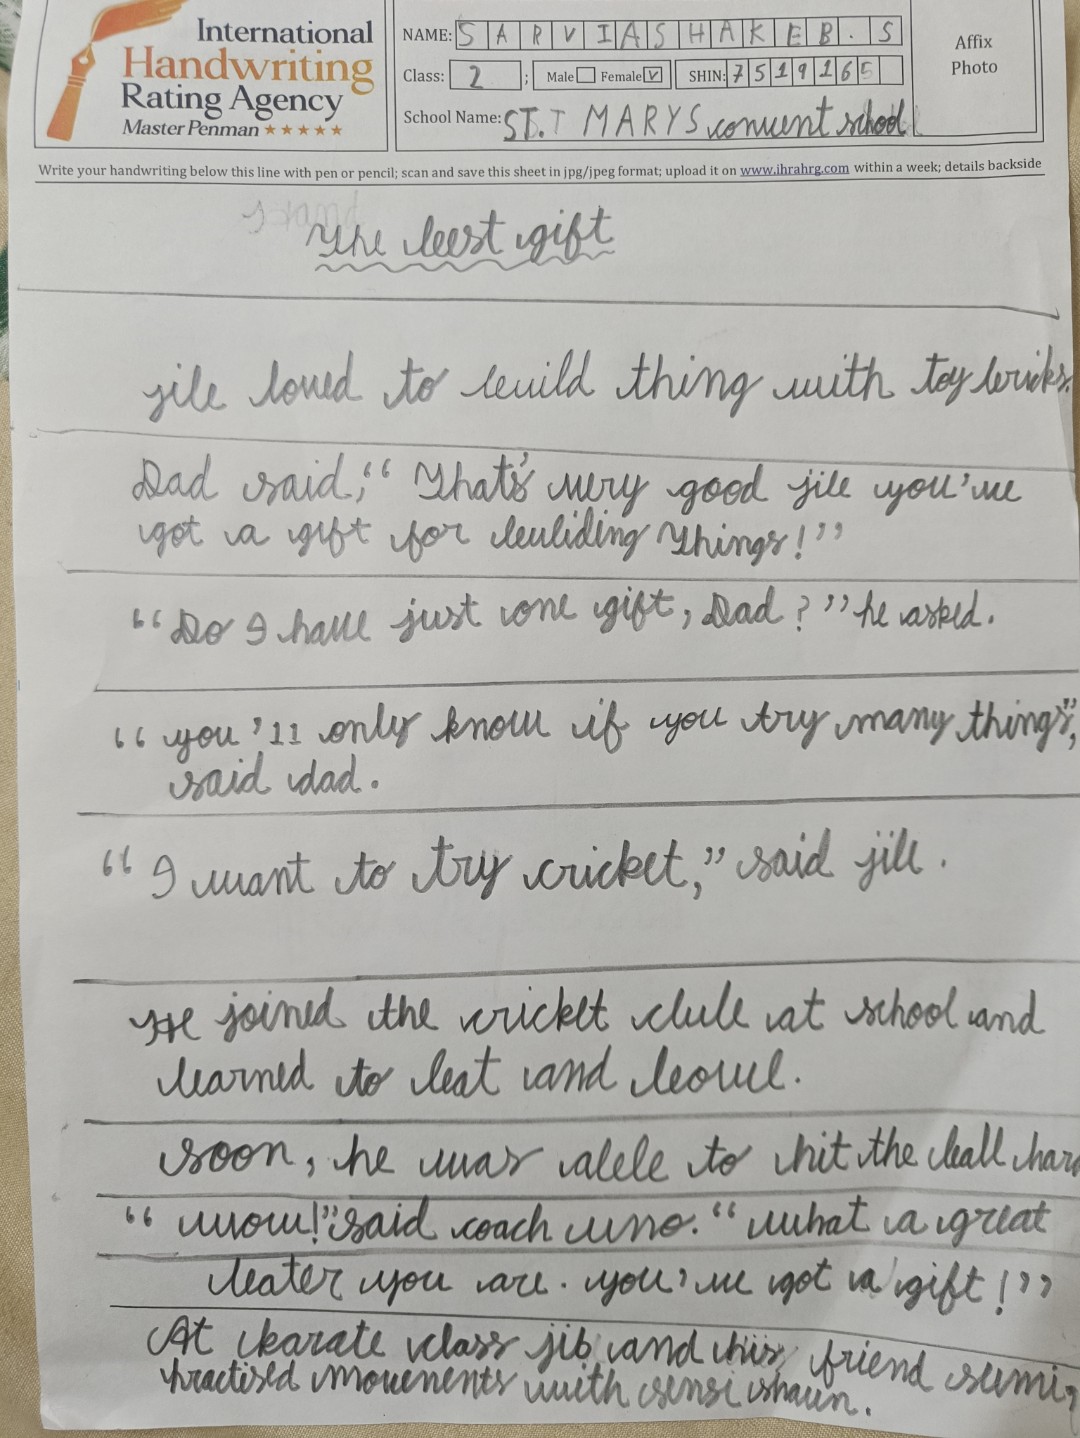 International
Handwriting
Rating Agency
Master Penman ★★★★★
NAME: SARVIASHAKEB. S
Class: 2 ; Male Female ✓ SHIN: 7519165
School Name: ST. T MARYS convent school
Affix
Photo
Write your handwriting below this line with pen or pencil; scan and save this sheet in jpg/jpeg format; upload it on www.ihrahrg.com within a week; details backside
The best gift
jile loved to build thing with toy bricks.
Dad said," That's very good jile you've
got a gift for buliding Things!"
"Do I have just one gift, Dad?" he asked.
"you'll only know if you try many things",
said dad.
"I want to try cricket," said jile.
He joined the cricket club at school and
learned to bat and bowl.
soon, he was able to hit the ball hard
"wow!" said coach uno. "what a great
bater you are. you've got a gift!"
At karate class jib and his friend sumi,
practised movenents with sensi shaun.